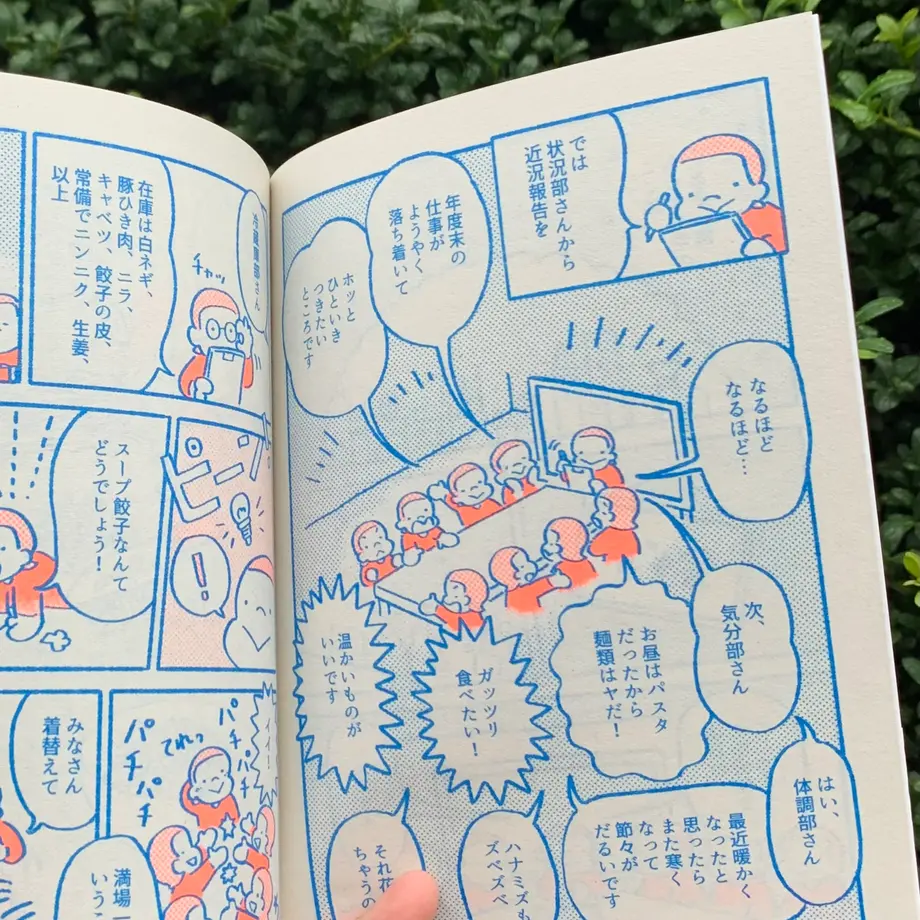 では
状況部さんから
近況報告を
年度末の
仕事が
ようやく
落ち着いて
ホッと
ひといき
つきたい
ところです
なるほど
なるほど…
次、
気分部さん
お昼はパスタ
だったから
麺類はヤだ!
ガッツリ
食べたい!
温かいものが
いいです
はい、
体調部さん
最近暖かく
なったと
思ったら
また寒く
なって
節々が
だるいです
ハナミズも
ズベズベ
それ花
ちゃうの
冷蔵庫部さん
チャッ
在庫は白ネギ、
豚ひき肉、ニラ、
キャベツ、餃子の皮、
常備でニンニク、生姜、
以上
ピーン
!
スープ餃子なんて
どうでしょう!
イイ!
パチ
パチ
パチ
パチ
てれっ
満場一
いうこ
みなさん
着替えて